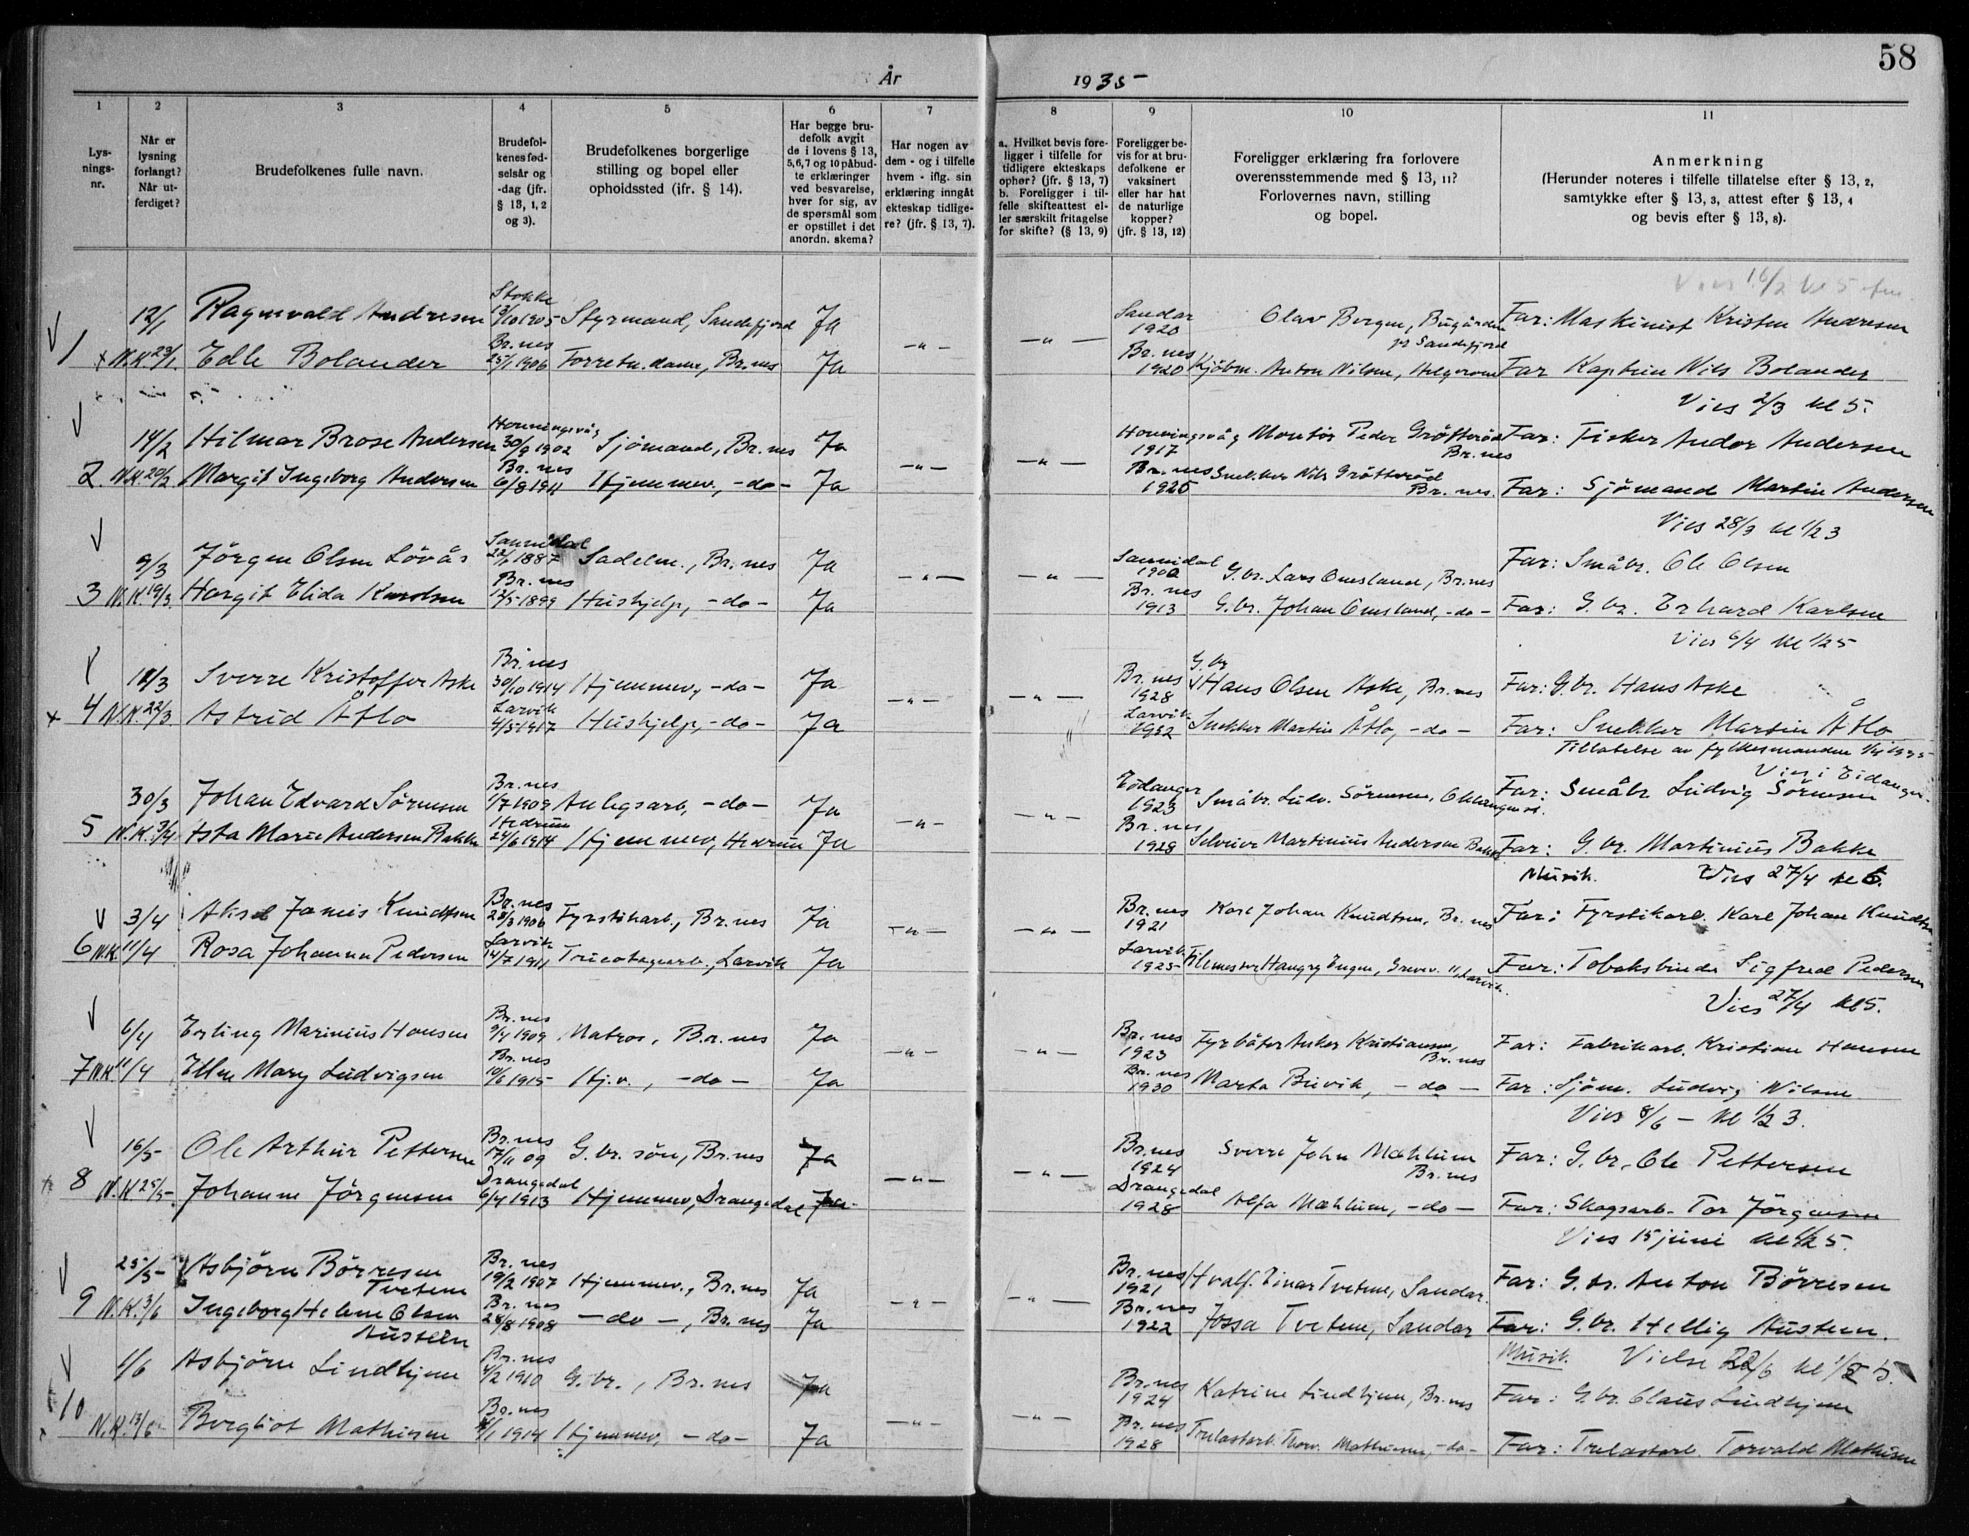 58
År 1935
1 2 3 4 5 6 7 8 9 10 11
Lys-
nings-
nr.
Når er
lysning
forlangt?
Når ut-
ferdiget?
Brudefolkenes fulle navn.
Brudefol-
kenes fød-
selsår og
-dag (jfr.
§ 13, 1, 2
og 3).
Brudefolkenes borgerlige
stilling og bopel eller
opholdssted (ifr. § 14).
Har begge bru-
defolk avgit
de i lovens § 13,
5, 6, 7 og 10 påbud-
te erklæringer
ved besvarelse,
hver for sig, av
de spørsmål som
er opstillet i det
anordn. skema?
Har nogen av
dem - og i tilfelle
hvem - iflg. sin
erklæring inngåt
ekteskap tidlige-
re? (jfr. § 13, 7).
a. Hvilket bevis fore-
ligger i tilfelle for
tidligere ekteskaps
ophør? (jfr. § 13, 7)
b. Foreligger i til-
felle skifteattest el-
ler særskilt fritagelse
for skifte? (§ 13, 9)
Foreligger be-
vis for at bru-
defolkene er
vaksinert
eller har hat
de naturlige
kopper?
(jfr. § 13, 12)
Foreligger erklæring fra forlovere
overensstemmende med § 13, 11?
Forlovernes navn, stilling
og bopel.
Anmerkning
(Herunder noteres i tilfelle tillatelse efter § 13, 2,
samtykke efter § 13, 3, attest efter § 13, 4
og bevis efter § 13, 8).
Vies 16/2 kl 5
12/1 Ragnvald Andresen Stokke 19/10 1905 Styrmand, Sandefjord Ja Sandar 1920 Olav Bergen, Bugården pr Sandefjord Far: Maskinist Kristen Andresen
1 N.K. 23/1 Edle Bolander Br.nes 25/1 1906 Forretn.dame, Br.nes Ja -"- -"- Br.nes 1920 Kjøbm. Anton Nilsen, Far Kaptein Nils Bolander
Vies 2/3 kl 5.
14/2 Hilmar Brose Andersen Honningsvåg 30/9 1902 Sjömand, Br.nes Ja Honningsvåg 1917 Montør Peder Gråtterød Br.nes Far: Fisker Andor Andersen
2. N.K. 20/2 Margit Ingeborg Andersen Br.nes 6/8 1911 Hjemmev., -do- Ja -"- -"- Br.nes 1925 Snekker Nils Gråtterød Br.nes. Far: Sjömand Martin Andersen
Vies 28/3 kl 1/2 3
9/3 Jörgen Olsen Lövås Sannidal 22/1 1887 Sadelm., Br.nes Ja Sannidal 1900 G.br. Lars Omsland, Br.nes Far: Småbr. Ole Olsen
3 N.K. 19/3 Hargit Elida Karlsen Br.nes 12/5 1899 Hushjelp, -do- Ja -"- -"- Br.nes 1913 G.br. Johan Omsland, -do- Far: G.br. Erhard Karlsen
Vies 6/4 kl 1/2 5
11/3 Sverre Kristoffer Aske Br.nes 30/10 1914 Hjemmev., -do- Ja Br.nes 1928 G.br Hans Olsen Aske, Br.nes Far: G.br. Hans Aske
4 N.K. 22/3 Astrid Åtlo Larvik 4/5 1917 Hushjelp, -do- Ja -"- -"- Larvik 1932 Snekker Martin Åtlo, -do- Far: Snekker Martin Åtlo
Tillatelse av fylkesmanden 1/4 1935
Vies i Eidanger.
30/3 Johan Edvard Sörensen Br.nes 1/7 1909 Anlegsarb, -do- Ja Eidanger 1923 Småbr. Ludv. Sörensen, Far: Småbr Ludvig Sörensen
5 N.K. 3/4 Asta Marie Andersen Bakke Hedrum 24/6 1914 Hjemmev, Hedrum Ja -"- -"- Br.nes 1928 Martinius Andersen Bakke Far: G.br. Martinius Bakke
Musik. Vies 27/4 kl 6.
3/4 Aksel Jamis Knudtsen Br.nes 28/3 1906 Fyrstikarb., Br.nes Ja Br.nes 1921 Karl Johan Knudtsen, Br.nes Far: Fyrstikarb. Karl Johan Knudtsen
6 N.K. 11/4 Rosa Johanna Pedersen Larvik 14/7 1911 Tricotagearb., Larvik Ja -"- -"- Larvik 1925 Larvik. Far: Tobaksbinder Sigfred Pedersen
Vies 27/4 kl 5.
6/4 Erling Marinius Hansen Br.nes 9/4 1909 Matros, Br.nes Ja Br.nes 1923 Fyrbøter Kristiansen, Br.nes Far: Fabrikarb. Kristian Hansen
7 N.K. 11/4 Ellen Mary Ludvigsen Br.nes 10/6 1915 Hj.v., -do- Ja -"- -"- Br.nes 1930 Marta Buvik, -do- Far: Sjöm. Ludvig Nilsen
Vies 8/6 - kl 1/2 3.
16/5 Ole Arthur Pettersen Br.nes 17/11 09 G.br. sön, Br.nes Ja Br.nes 1924 Sverre John Mæhlum Br.nes Far: G.br. Ole Pettersen
8 N.K. 25/5 Johanne Jörgensen Drangedal 6/4 1913 Hjemmev, Drangedal Ja -"- -"- Drangedal 1928 Alfa Mæhlum, -do- Far: Skogsarb. Tor Jörgensen
Vies 15 juni kl 1/2 5.
25/5 Asbjörn Börresen Tvetene Br.nes 19/2 1907 Hjemmev., Br.nes Ja Br.nes 1921 Hvalf. Einar Tvetene, Sandar. Far: G.br. Anton Börresen
9 N.K. 3/6 Ingeborg Helene Olsen Austein Br.nes 28/8 1908 -do-, Br.nes Ja -"- -"- Br.nes 1922 Jossa Tvetene, Sandar Far: G.br. Hellig Austeen.
Musik. Vielse 22/6 kl 1/2 5.
1/6 Asbjörn Lindhjem Br.nes 4/2 1910 G.br., Br.nes Ja Br.nes 1924 Katrine Lindhjem, Br.nes Far: G.br. Claus Lindhjem
10 N.K. 13/6 Bergliot Mathisen Br.nes 1914 Hjemmev, -do- Ja -"- -"- Br.nes 1928 Trelastarb. Thorv. Mathisen, -do- Far: Trelastarb. Torvald Mathisen